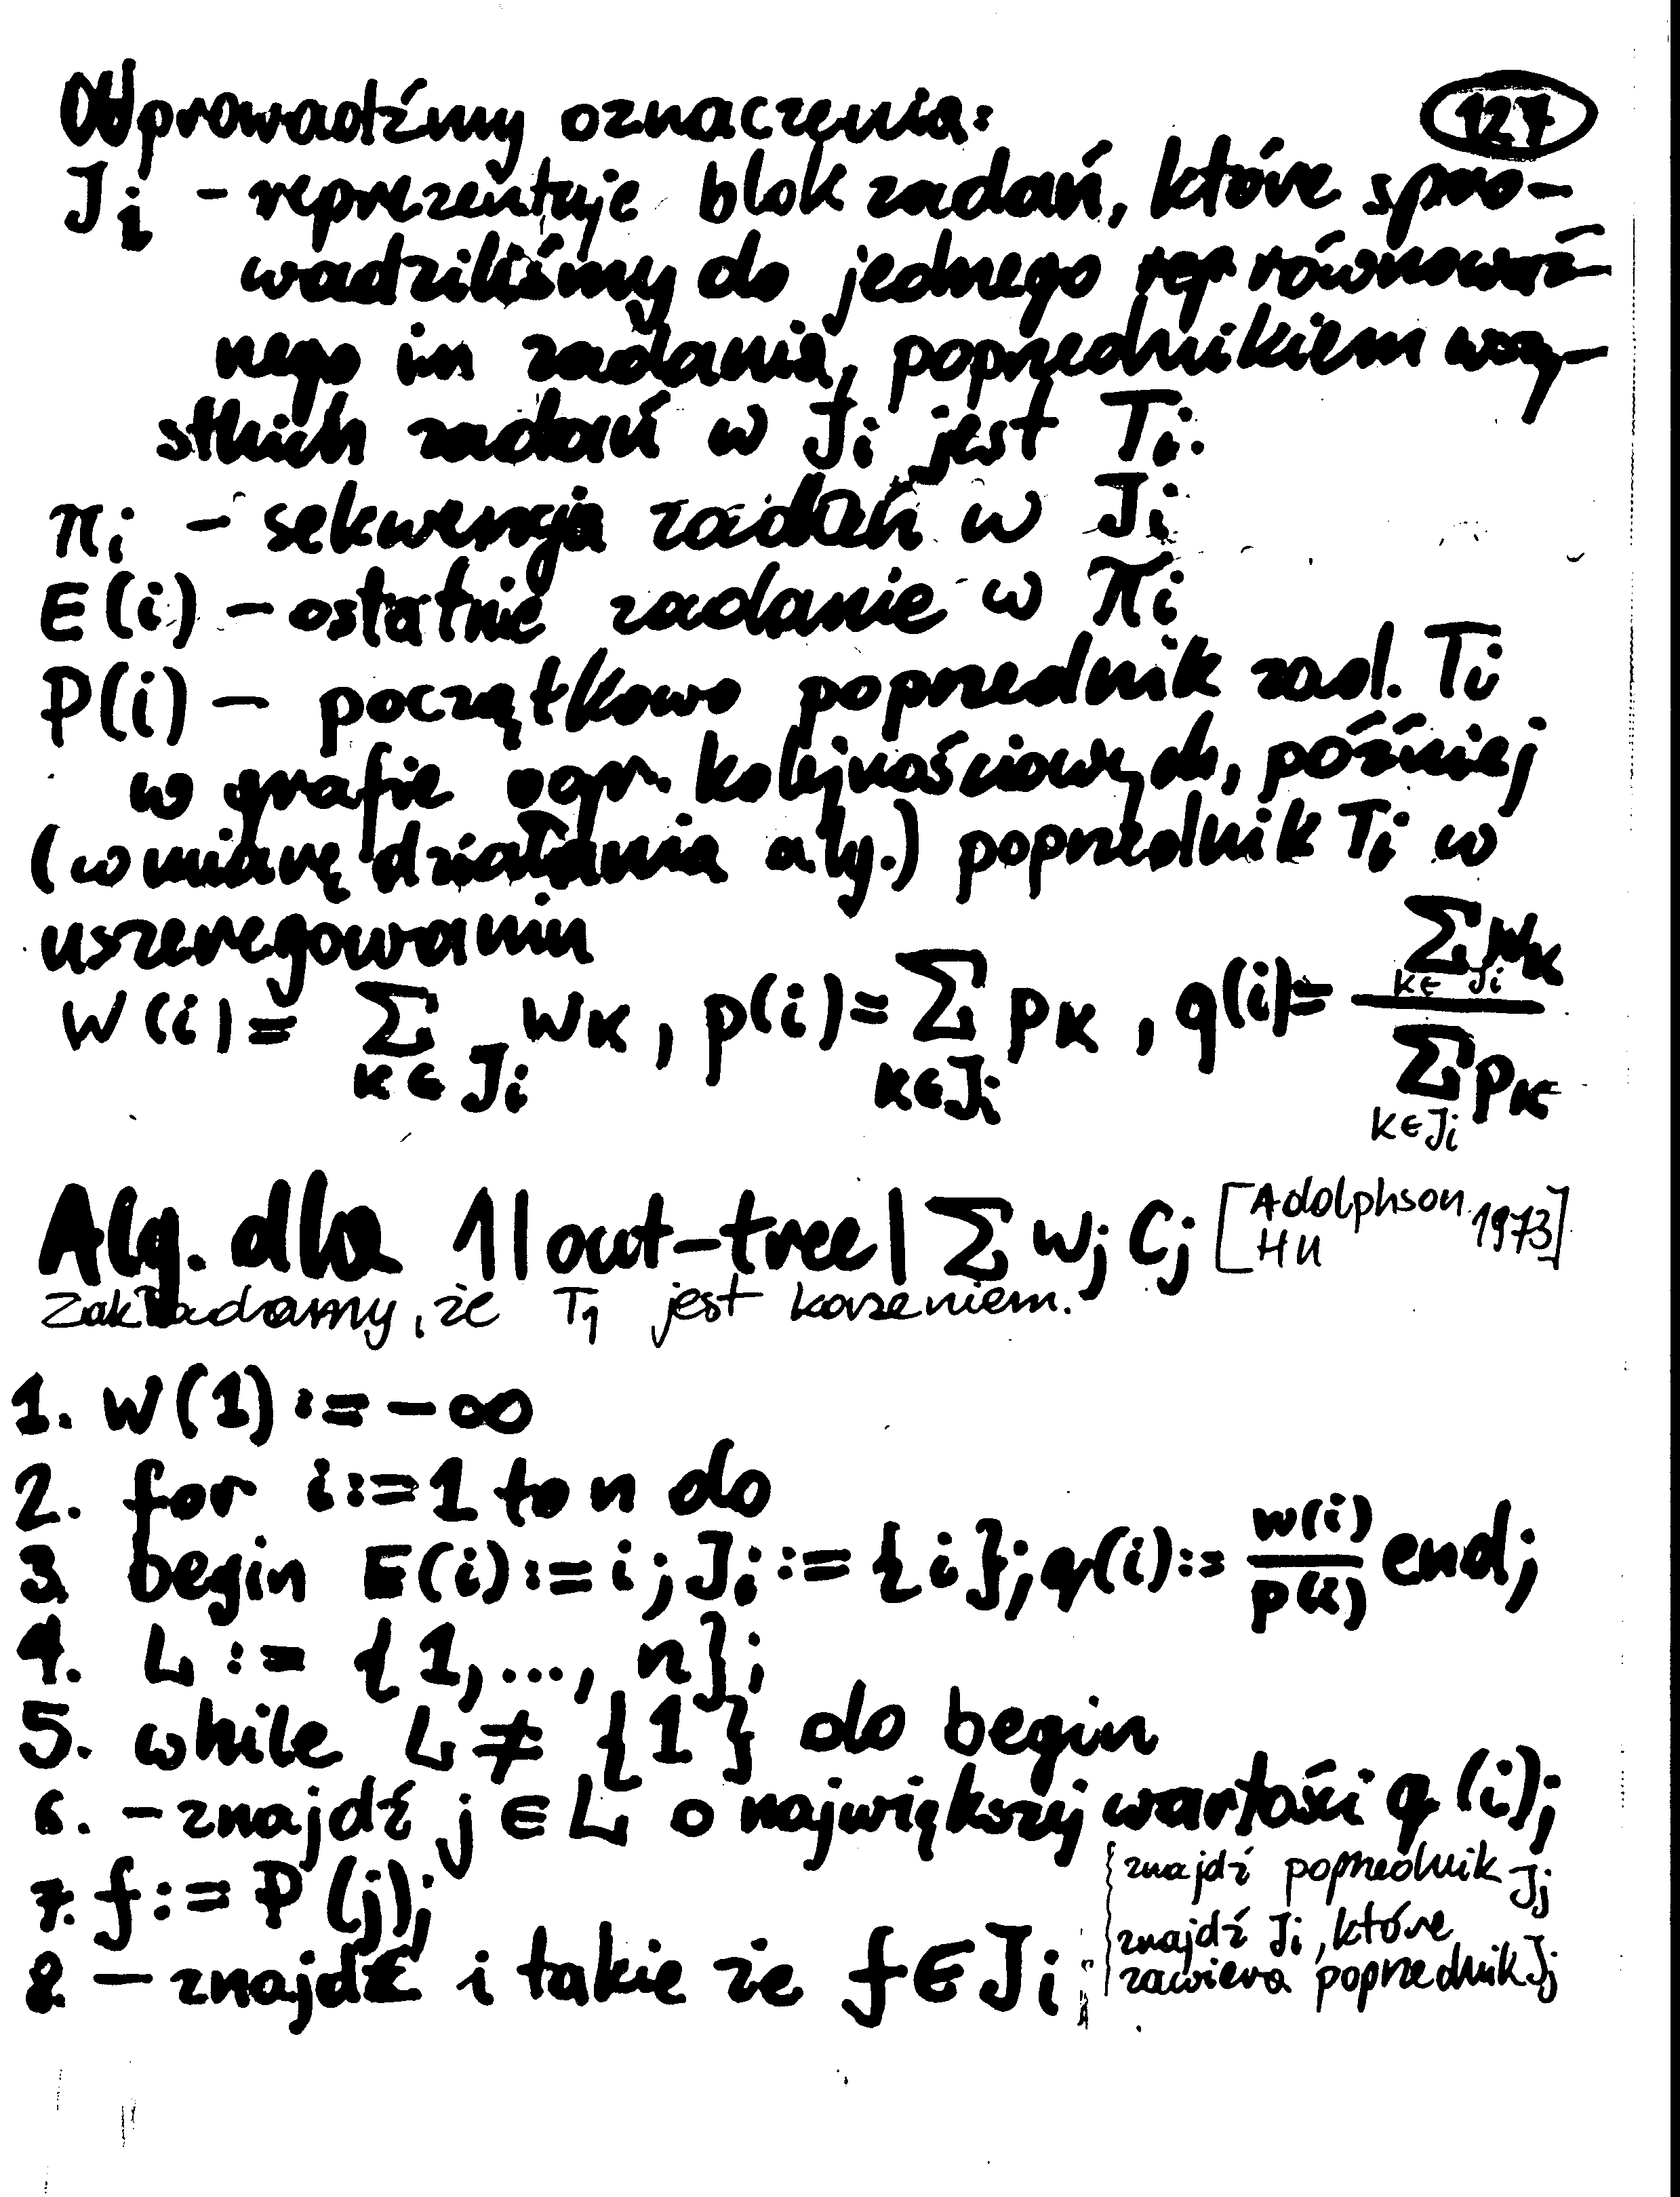 Wprowadźmy oznaczenia:
127
Ji - reprezentuje blok zadań, które spro-
wadziliśmy do jednego równoważ-
nego im zadania, poprzednikiem wszy-
stkich zadań w Ji jest Ti.
πi - sekwencja zadań w Ji
E(i) - ostatnie zadanie w πi
P(i) - początkowo poprzednik zad. Ti
w grafie ogr. kolejnościowych, później
(w miarę działania alg.) poprzednik Ti w
uszeregowaniu
W(i) = ∑ k∈Ji wk, p(i) = ∑ k∈Ji pk, q(i) = ∑ k∈Ji wk / ∑ k∈Ji pk
Alg. dla 1|out-tree|∑ wj Cj [Adolphson Hu 1973]
Zakładamy, że T1 jest korzeniem.
1. W(1) := -∞
2. for i:=1 to n do
3. begin E(i):=i; Ji:={i}; q(i):= w(i)/p(i) end;
4. L := {1,..., n};
5. while L ≠ {1} do begin
6. - znajdź j ∈ L o największej wartości q(i);
7. f := P(j);
znajdź poprzednik Jj
8. - znajdź i takie że f ∈ Ji;
znajdź Ji, które
zawiera poprzednik Jj